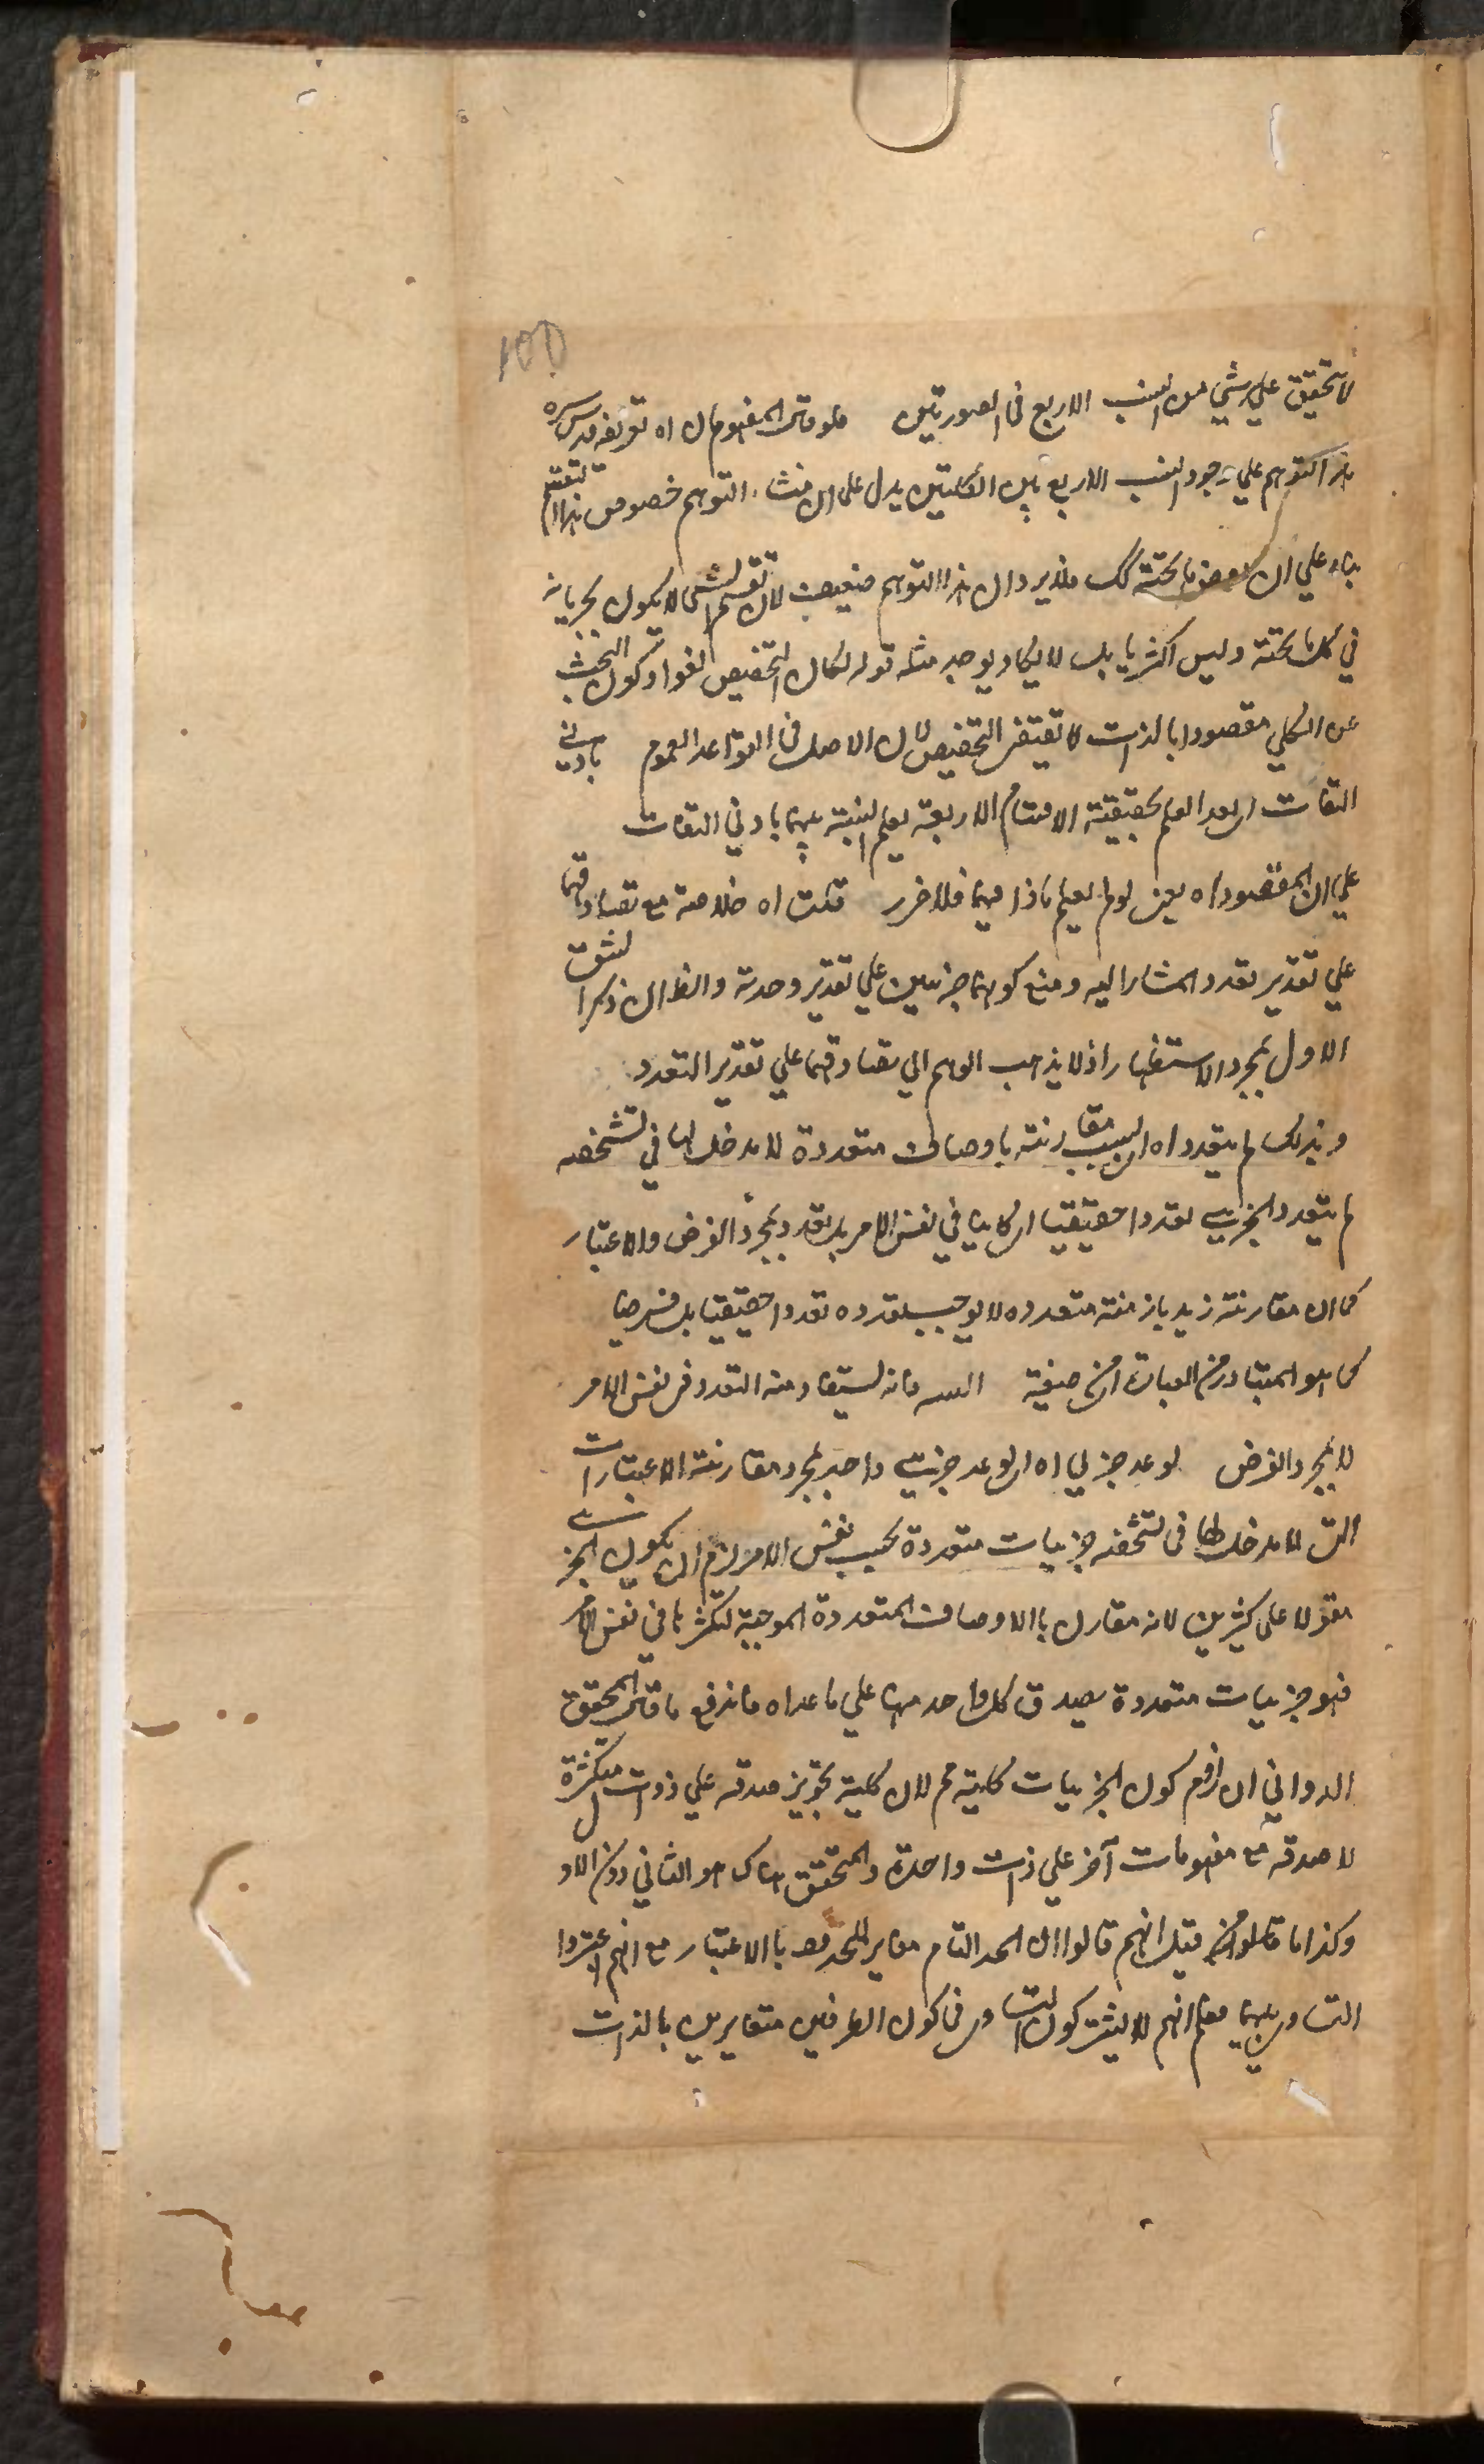 ١٥٥
لا تحقيق على شيئ من النسب الاربع في الصورتين فلو قال المفهومان اه تفريعه قدس سره
هذا التوهم على وجود النسب الاربع بين الكليتين يدل على ان منشاء التوهم خصوص هذا التقسيم
بناء على ان بعض ما تحته كك فلا يرد ان هذا التوهم ضعيف لان تقسيم الشي لا يكون بجريانه
في كل ما تحته وليس اكثريا بل لا يكاد يوجد مثله قوله لكان التخصيص لغوا وكون البحث
عن الكلي مقصودا بالذات لا يقتضي التخصيص لان الاصل في القواعد العموم بادنى
التفات اى بعد العلم بحقيقة الاقسام الاربعة يعلم النسبة بينهما بادنى التفات
على ان المقصود اه يعنى لو لم يعلم ماذا بينهما فلا ضرر قلت اه خلاصة منع تصادقهما
على تقدير تعدد المشار اليه ومنع كونهما جزئيين على تقدير وحدته والظ ان ذكر الشق
الاول لمجرد الاستظهار اذ لا يذهب الوهم الى تصادقهما على تقدير التعدد
وبذلك لم يتعدد اه اى بسبب مقارنته باوصاف متعددة لا مدخل لها في تشخصه
لم يتعدد الجزئى تعددا حقيقيا اى كاينا في نفس الامر بل تعدد بمجرد الفرض والاعتبار
كما ان مقارنة زيد بازمنة متعدده لا يوجب تعدده تعددا حقيقيا بل فرضيا
كما هو المتبادر من العبارة اى من صيغة فانه يستفاد منه التعدد في نفس الامر
لا بمجرد الفرض لو عد جزئى اه اى لو عد جزئى واحد بمجرد مقارنة الاعتبارات
التى لا مدخل لها فى تشخصه جزئيات متعددة بحسب نفس الامر لزم ان يكون الجزئى
مقولا على كثيرين لانه مقارن بالاوصاف المتعددة الموجبة لتكثرها في نفس الامر
فهو جزئيات متعددة يصدق كل واحد منها على ما عداه فاندفع ما قال المحقق
الدوانى ان لزوم كون الجزئيات كلية مم لان كلية تجويز صدقه على ذوات متكثرة
لا صدقه مع مفهومات آخر على ذات واحدة والمتحقق هناك هو الثاني دون الاول
وكذا ما قالوا من قبل انهم قالوا ان الحد التام مغاير للمحدود بالاعتبار مع انهم اعتبروا
التساوى بينهما فعلم انهم لا يشترطون التساوى فى كون الطرفين متغايرين بالذات